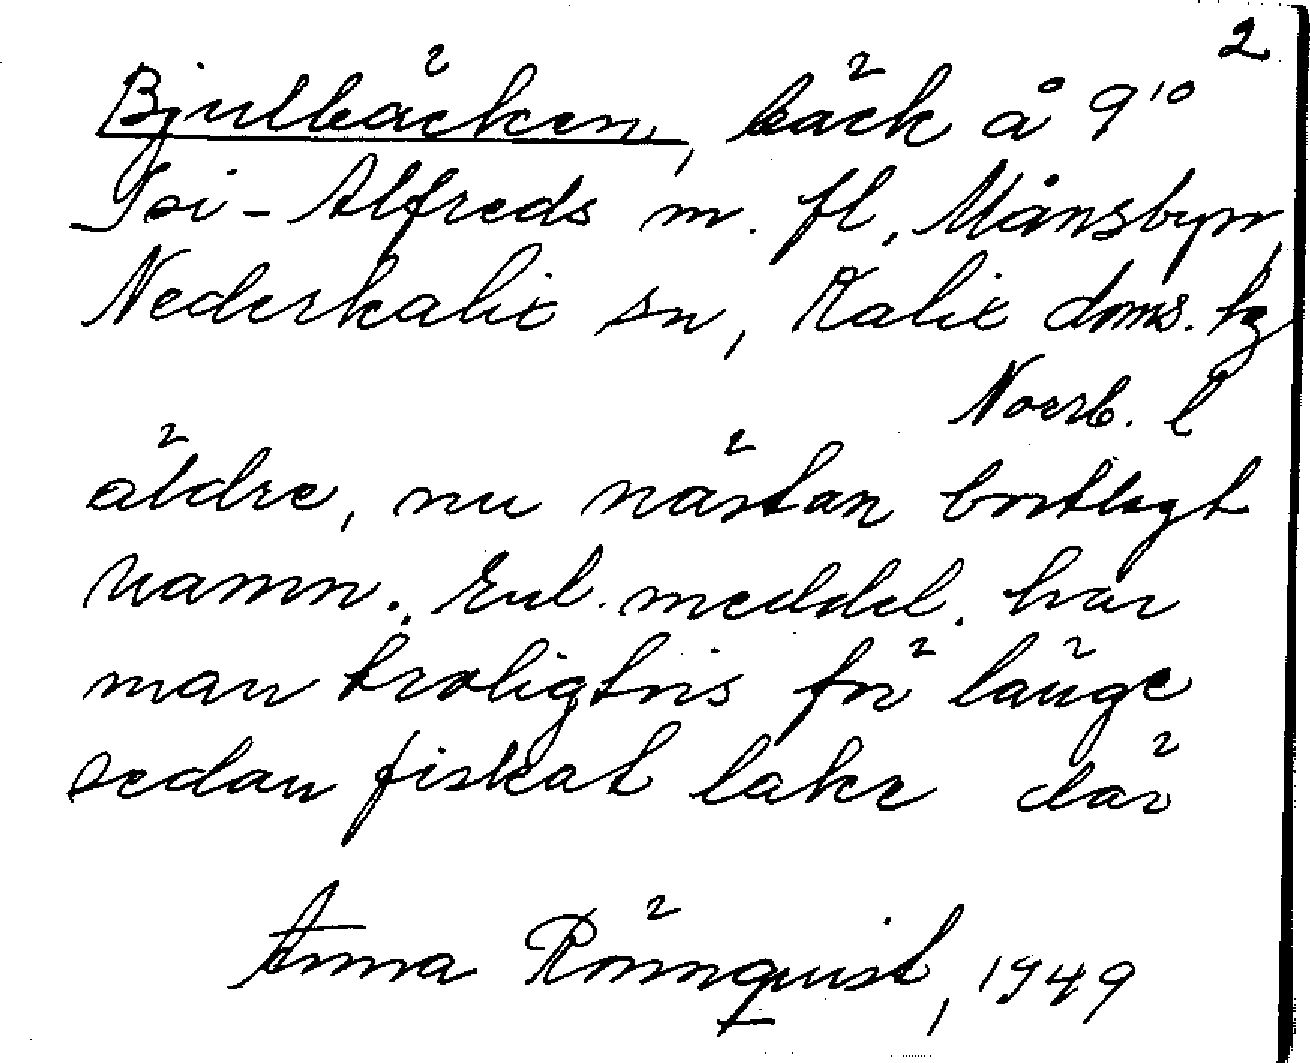 2
Bjulbäcken, bäck å 9¹⁰
Isi-Alfreds m. fl, Månsbyn,
Nederkalix sn, Kalix doms. hg
Norrb. l
äldre, nu nästan bortlagt
namn. Enl. meddel. har
man troligtvis för länge
sedan fiskat lake där
Anna Rönnquist, 1949